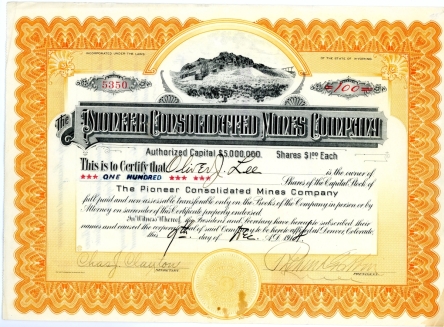 INCORPORATED UNDER THE LAWS OF THE STATE OF WYOMING
5350 100
The Pioneer Consolidated Mines Company
Authorized Capital $5,000,000 Shares $1.00 Each
This is to Certify that Oliver J. Lee is the owner of
*** ONE HUNDRED *** *** Shares of the Capital Stock of
The Pioneer Consolidated Mines Company
full paid and non assessable transferable only on the Books of the Company in person or by
Attorney on surrender of this Certificate properly endorsed.
In Witness Whereof, the President and Secretary have hereunto subscribed their
names and caused the corporate seal of said Company to be hereto affixed at Denver, Colorado,
this 9th day of Dec.
SECRETARY PRESIDENT